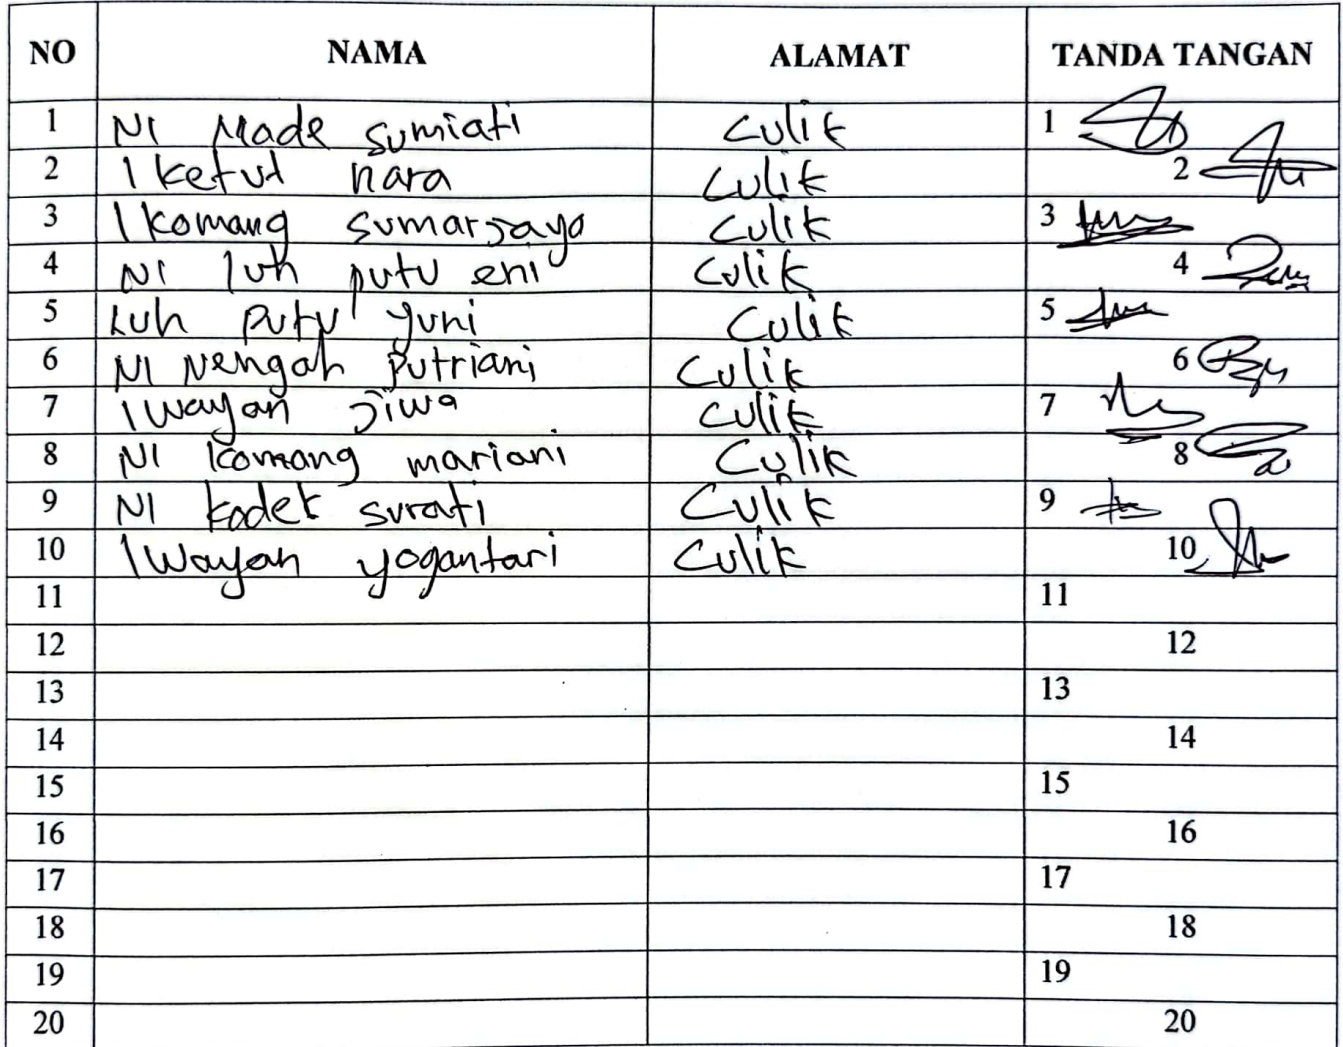 NO NAMA ALAMAT TANDA TANGAN
1 NI Made sumiati Culik 1
2 I ketut nara Culik 2
3 I komang sumarjaya Culik 3
4 NI luh putu eni Culik 4
5 Luh putu yuni Culik 5
6 NI Nengah putriani Culik 6
7 I wayan jiwa Culik 7
8 NI komang mariani Culik 8
9 NI kadek surati Culik 9
10 I Wayan yogantari Culik 10
11 11
12 12
13 13
14 14
15 15
16 16
17 17
18 18
19 19
20 20